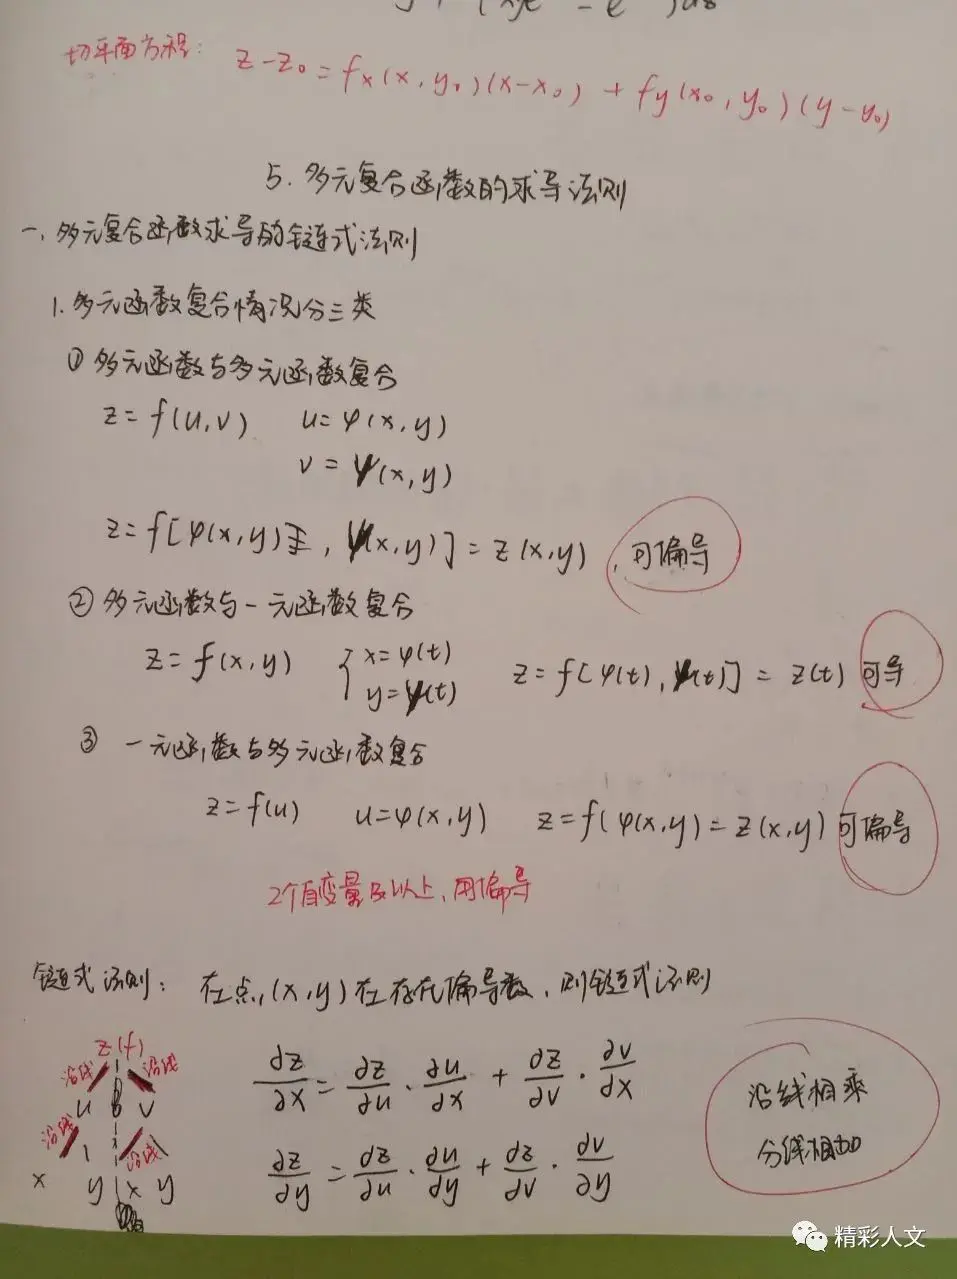 切平面方程: z-z₀=fx(x,y₀)(x-x₀) + fy(x₀,y₀)(y-y₀)
5.多元复合函数的求导法则
一.多元复合函数求导的链式法则
1.多元函数复合情况分三类
① 多元函数与多元函数复合
z=f(u,v) u=φ(x,y)
v=ψ(x,y)
z=f[φ(x,y), ψ(x,y)]=z(x,y),可偏导
② 多元函数与一元函数复合
z=f(x,y) { x=φ(t) y=ψ(t) z=f[φ(t),ψ(t)]=z(t) 可导
③ 一元函数与多元函数复合
z=f(u) u=φ(x,y) z=f(φ(x,y)=z(x,y) 可偏导
2个自变量及以上,用偏导
链式法则: 在点(x,y)在存在偏导数,则链式法则
z(f)
沿线 沿线
u v
沿线 沿线
x y x y
∂z/∂x=∂z/∂u·∂u/∂x+∂z/∂v·∂v/∂x
∂z/∂y=∂z/∂u·∂u/∂y+∂z/∂v·∂v/∂y
沿线相乘
分线相加
精彩人文